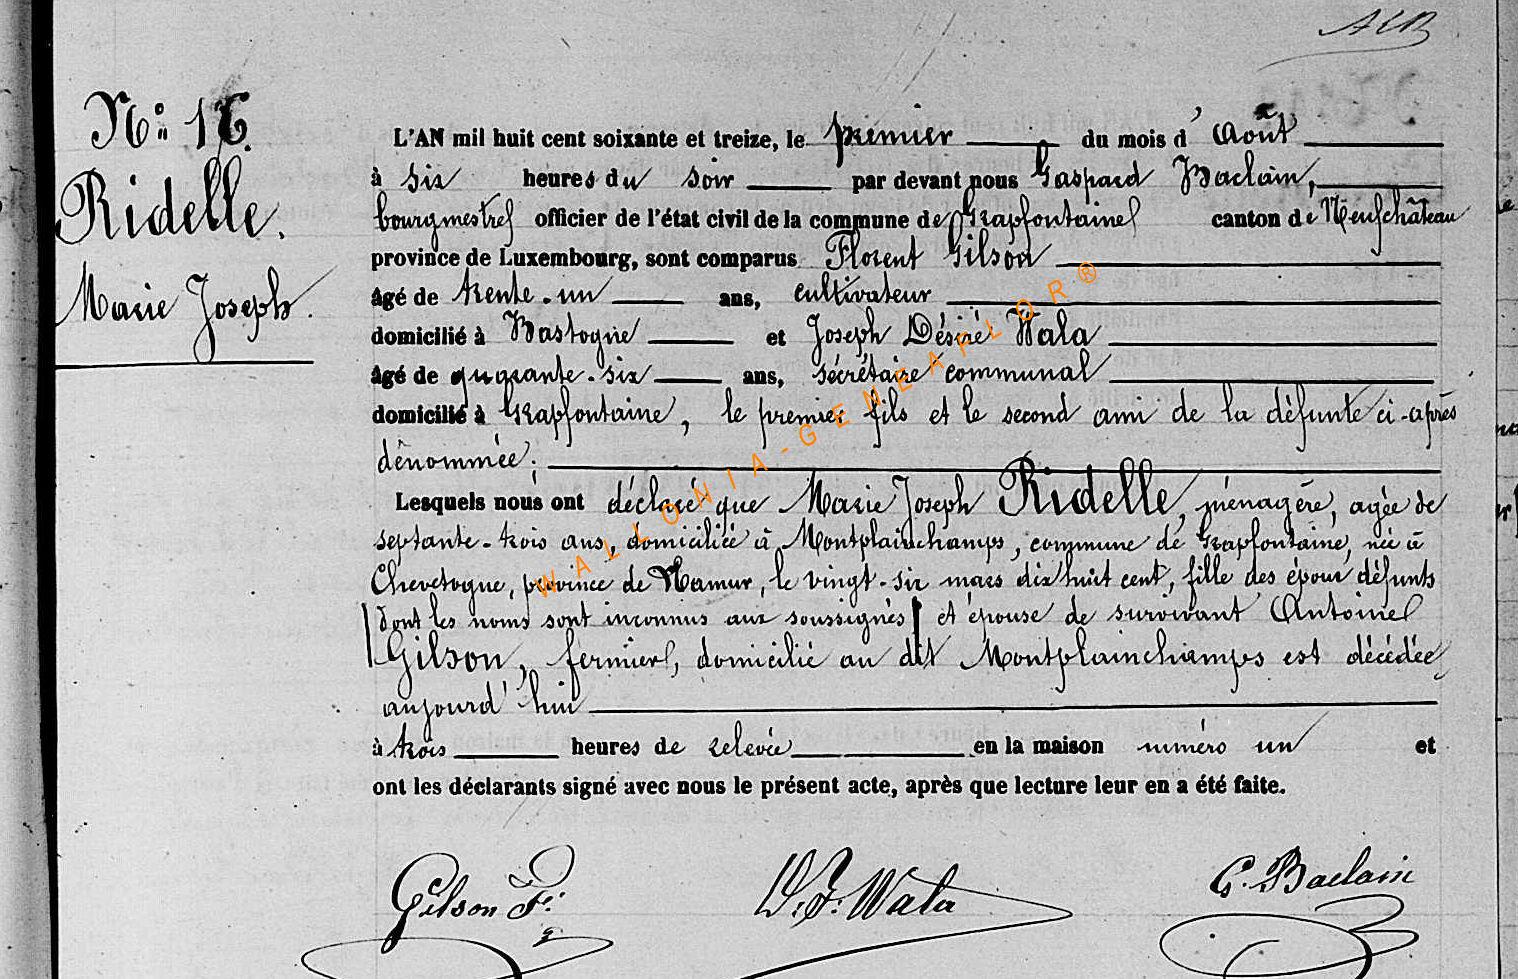 N° 16.
Ridelle.
Marie Joseph.
L'AN mil huit cent soixante et treize, le premier du mois d'Août
à six heures du soir par devant nous Gaspard Baclain,
bourgmestre officier de l'état civil de la commune de Grapfontaine canton de Neufchâteau
province de Luxembourg, sont comparus Florent Gilson
âgé de trente-un ans, cultivateur
domicilié à Bastogne et Joseph Désiré Wala
âgé de quarante-six ans, sécrétaire communal
domicilié à Grapfontaine, le premier fils et le second ami de la défunte ci-après
dénommée;
Lesquels nous ont déclaré que Marie Joseph Ridelle, ménagère, agée de
septante-trois ans, domiciliée à Montplainchamps, commune de Grapfontaine, née à
Chevetogne, province de Namur, le vingt-six mars dix huit cent, fille des époux défunts
dont les noms sont inconnus aux soussignés et épouse de survivant Antoine
Gilson, fermier, domicilié au dit Montplainchamps est décédée
aujourd'hui
à trois heures de relevée en la maison numéro un et
ont les déclarants signé avec nous le présent acte, après que lecture leur en a été faite.
Gilson F. Wala G. Baclain
WALLONIA-GENEAFLOR®